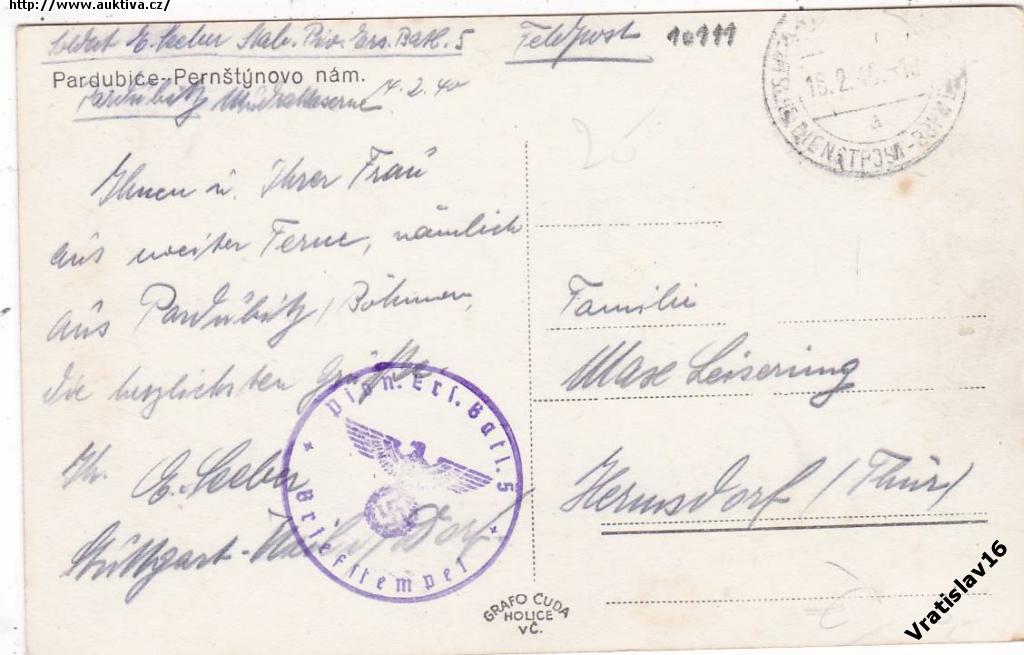 http://www.auktiva.cz/
Soldat E. Seeber Stab. Pio. Ers. Batl. 5
Feldpost
Pardubice-Pernštýnovo nám.
Pardubitz 14.2.40
Ihnen u. Ihrer Frau
aus weiter Ferne, nämlich
aus Pardubitz / Böhmen,
die herzlichsten Grüße
Ihr E. Seeber
Stuttgart-
DEUTSCHE DIENSTPOST
15.2.40
a
20
Familie
Max Leisering
Hermsdorf / Thür /
Pion. Ers. Batl. 5
Briefstempel
GRAFO ČUDA
HOLICE
VČ.
Vratislav16